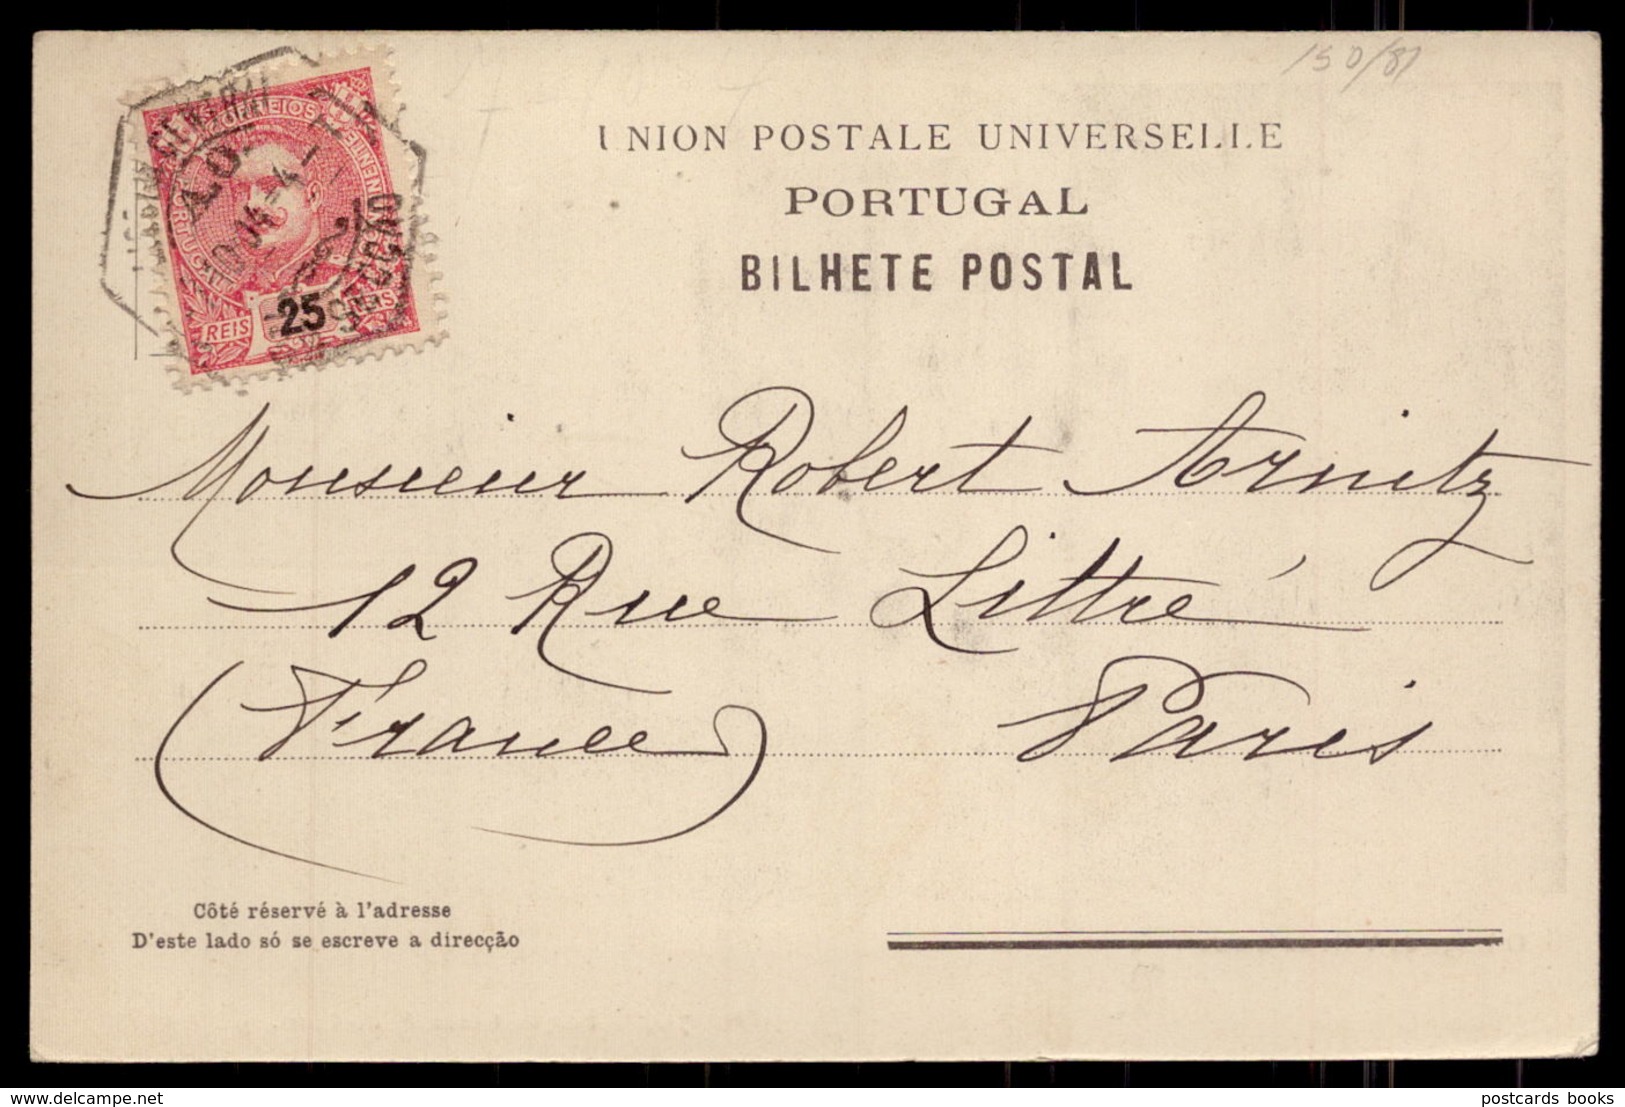 150/81
UNION POSTALE UNIVERSELLE
PORTUGAL
BILHETE POSTAL
CORREIOS
PORTUGAL
25
REIS REIS
Monsieur Robert Arnitz
12 Rue Littré
(France) Paris
Côté réservé à l'adresse
D'este lado só se escreve a direcção
Visit www.delcampe.net
postcards books